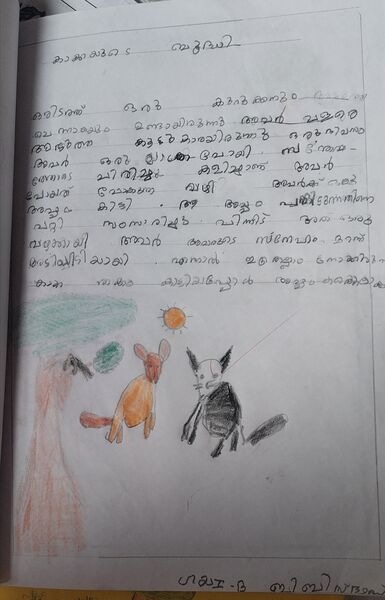 കാക്കയുടെ ബുദ്ധി
ഒരിടത്ത് ഒരു കുറുക്കനും
ചെന്നായും ഉണ്ടായിരുന്നു അവർ വളരെ
അടുത്ത കൂട്ടുകാരായിരുന്നു ഒരു ദിവസം
അവർ ഒരു യാത്ര പോയി . സന്തോഷ-
ത്തോടെ ചിരിച്ചും കളിച്ചുമാണ് അവർ
പോയത് പോകുന്ന വഴി അവർക്ക് ഒരു
അപ്പം കിട്ടി . ആ അപ്പം പങ്കിടുന്നതിനെ
പറ്റി സംസാരിച്ചു . പിന്നീട് അത് ഒരു
വഴക്കായി അവർ അവരുടെ സ്നേഹം മറന്ന്
അടിപിടിയായി . എന്നാൽ ഇതെല്ലാം നോക്കിനിന്ന
കാക്ക താഴെ അപ്പം